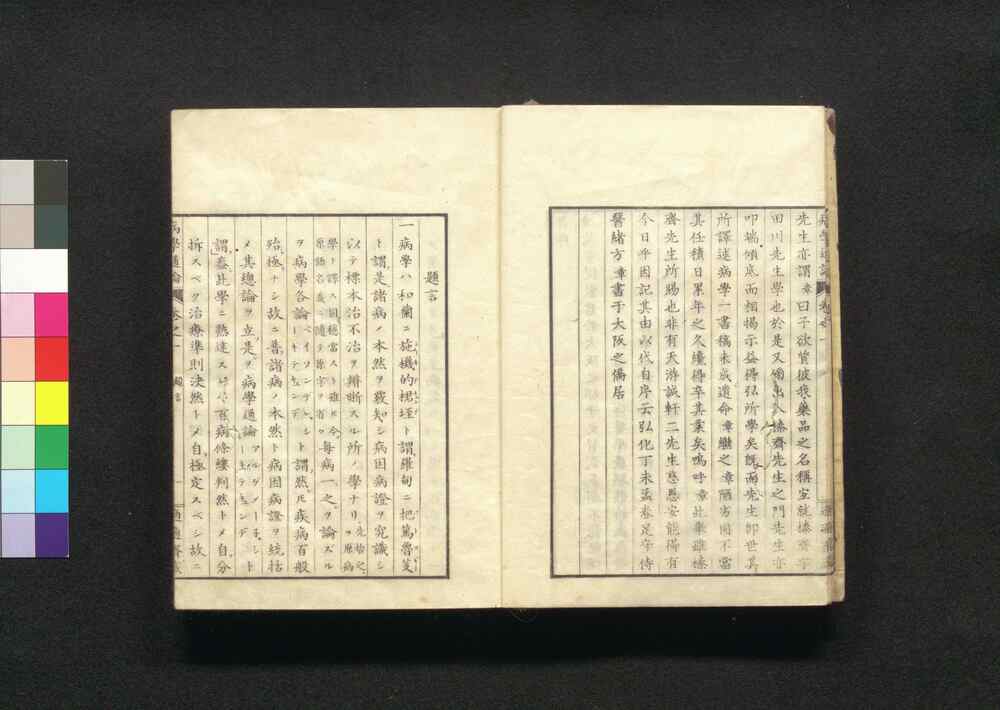 先生亦謂章曰子欲審彼我藥品之名稱宜就榛齋宇
田川先生學也於是又出入榛齋先生之門先生亦
叩端傾底而相揭示益得弘所學矣既而先生即世其
所譯述病學一書稿未成遺命章繼之章陋劣固不當
其任積日累年之久纔得卒其業矣嗚呼章此業雖榛
齋先生所賜也非有天游誠軒二先生慈恩安能得有
今日乎因記其由以代自序云弘化丁未孟春足守侍
醫緒方章書于大阪之僑居
題言
一病學ハ和蘭ニ施機的裙垤ト謂羅甸ニ把篤魯芰
ト謂是諸病ノ本然ヲ察知シ病因病證ヲ究識シ
以テ標本治不治ヲ辨斷スル所ノ學ナリ
ヲ病學各論ト謂然モ疾病百般
殆極ナシ故ニ普諸病ノ本然ト病因病證ヲ統括
メ其總論ヲ立是ヲ病學通論
謂蓋此學ニ熟達スレハ百病條縷判然トメ自分
拆スベク治療準則決然トメ自極定スベシ故ニ
病學通論 卷之一 題言